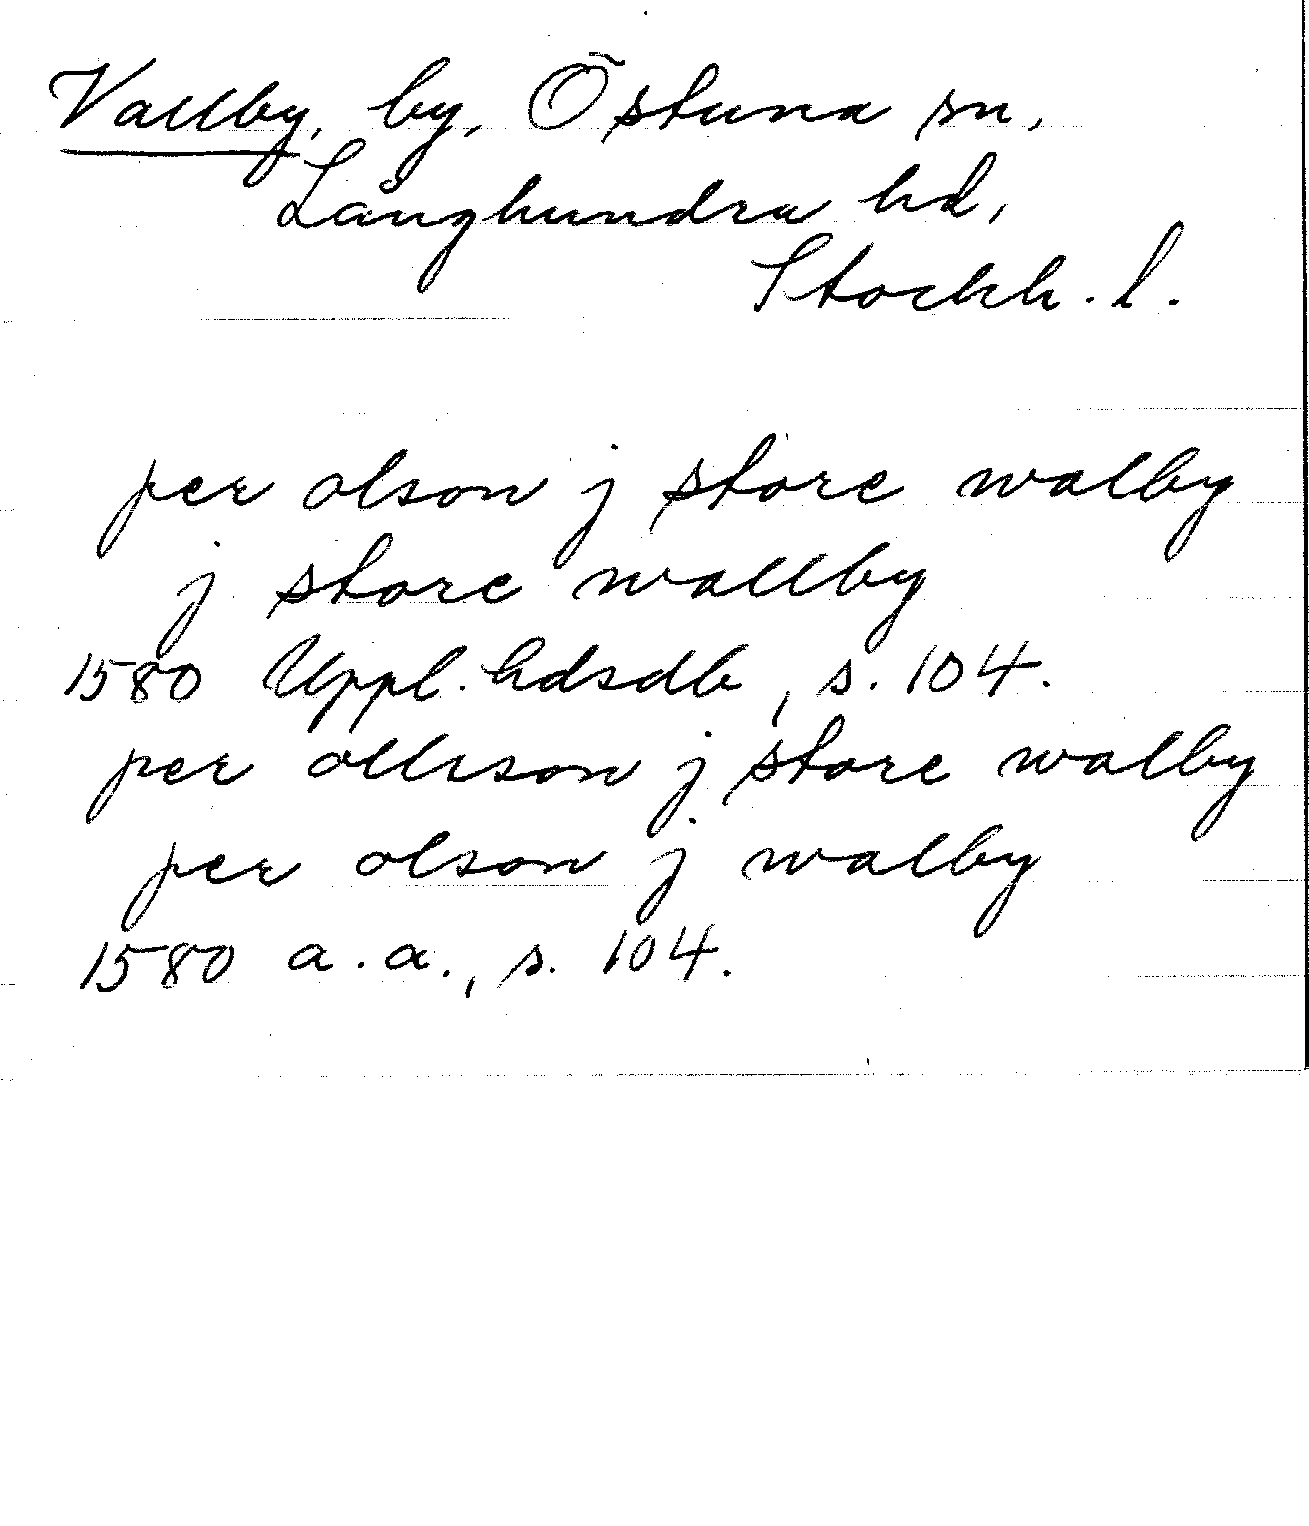 Vallby, by, Östuna sn,
Långhundra hd,
Stockh. l.
per olson j store walby
j store wallby
1580 Uppl. hdsdb, s. 104.
per ollrson j store walby
per olson j walby
1580 a.a., s. 104.